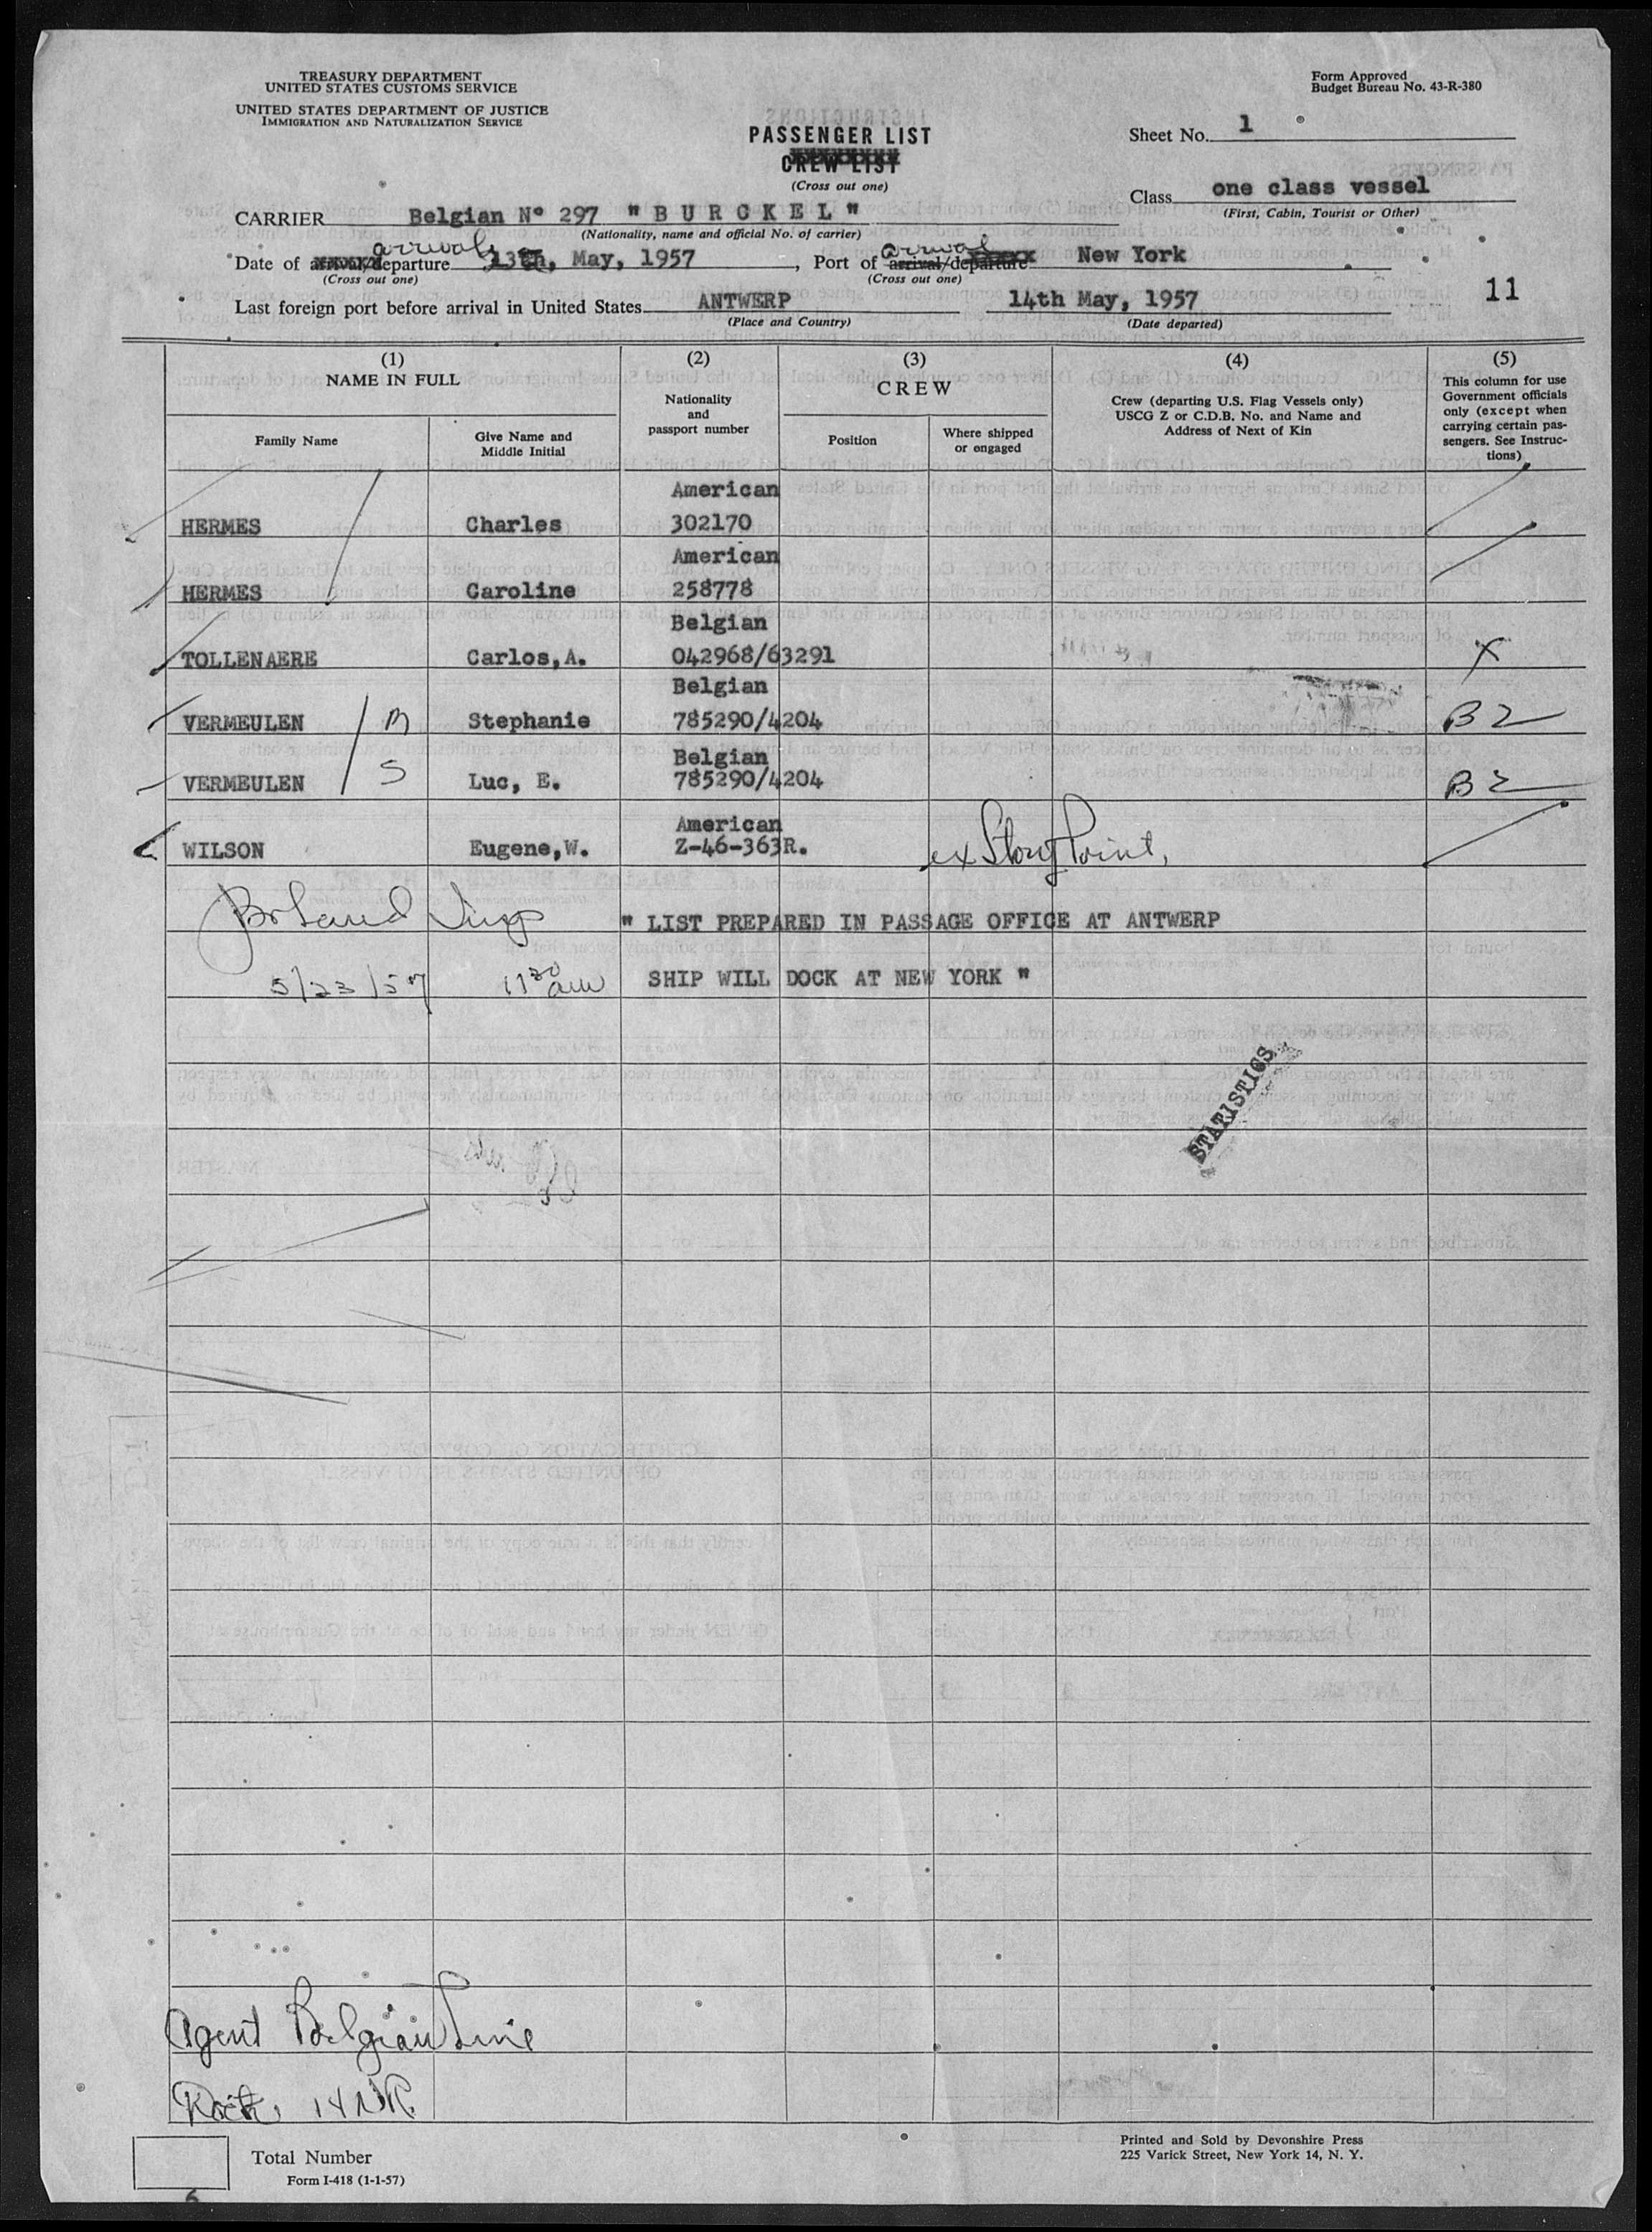 TREASURY DEPARTMENT
UNITED STATES CUSTOMS SERVICE
UNITED STATES DEPARTMENT OF JUSTICE
IMMIGRATION AND NATURALIZATION SERVICE
Form Approved
Budget Bureau No. 43-R-380
PASSENGER LIST
CREW LIST
(Cross out one)
Sheet No. 1
Class one class vessel
(First, Cabin, Tourist or Other)
CARRIER Belgian N° 297 "BURCKEL"
(Nationality, name and official No. of carrier)
arrival
arrival
Date of arrival/departure 13th, May, 1957, Port of arrival/departure New York
(Cross out one) (Cross out one)
Last foreign port before arrival in United States ANTWERP 14th May, 1957 11
(Place and Country) (Date departed)
(1) (2) (3) (4) (5)
NAME IN FULL
Nationality
and
passport number
CREW
Crew (departing U.S. Flag Vessels only)
USCG Z or C.D.B. No. and Name and
Address of Next of Kin
This column for use
Government officials
only (except when
carrying certain pas-
sengers. See Instruc-
tions)
Family Name
Give Name and
Middle Initial
Position
Where shipped
or engaged
American
HERMES Charles 302170
American
HERMES Caroline 258778
Belgian
TOLLENAERE Carlos,A. 042968/63291 X
Belgian
VERMEULEN M Stephanie 785290/4204 B2
Belgian
VERMEULEN S Luc, E. 785290/4204 B2
American
WILSON Eugene,W. Z-46-363R. ex Stony Point,
" LIST PREPARED IN PASSAGE OFFICE AT ANTWERP
5/23/57 11 30 am SHIP WILL DOCK AT NEW YORK "
STATISTICS
Agent Belgian Line
14 NR
Total Number
Form I-418 (1-1-57)
6
Printed and Sold by Devonshire Press
225 Varick Street, New York 14, N. Y.